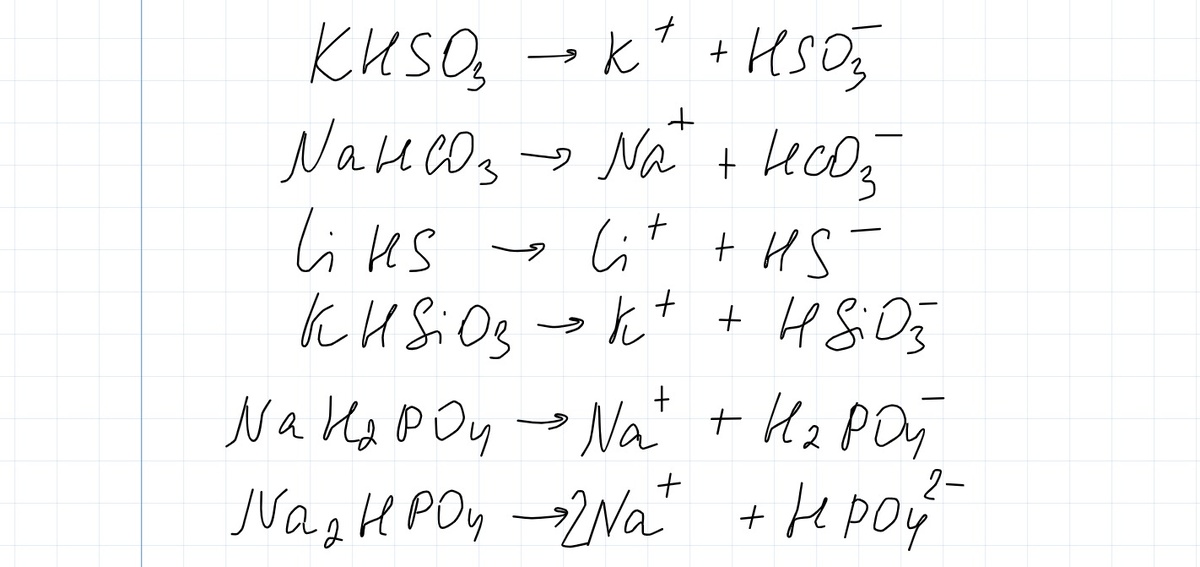 KHSO₃ → K⁺ + HSO₃⁻
NaHCO₃ → Na⁺ + HCO₃⁻
LiHS → Li⁺ + HS⁻
KHSiO₃ → K⁺ + HSiO₃⁻
NaH₂PO₄ → Na⁺ + H₂PO₄⁻
Na₂HPO₄ → 2Na⁺ + HPO₄²⁻